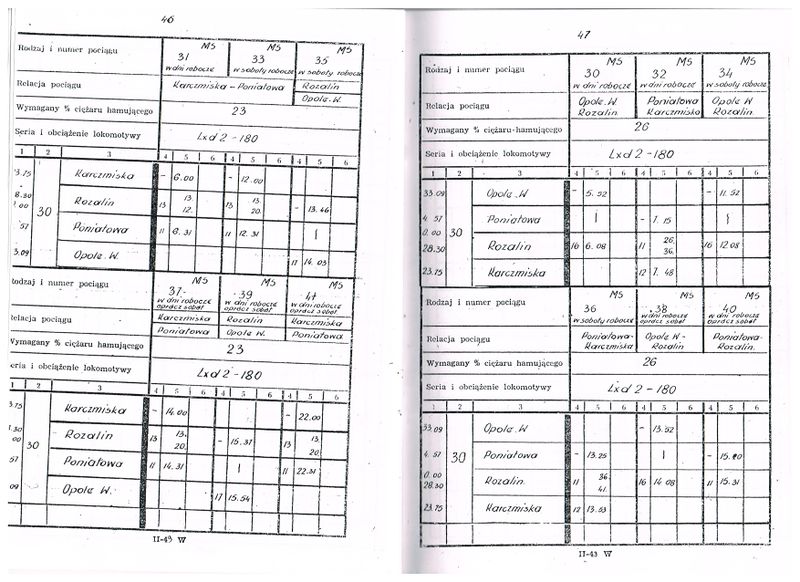 46
Rodzaj i numer pociągu
MS MS MS
31 33 35
w dni robocze w soboty robocze w soboty robocze
Relacja pociągu
Karczmiska - Poniatowa Rozalin
Opole.W.
Wymagany % ciężaru hamującego
23
Seria i obciążenie lokomotywy
Lxd2-180
1 2 3 4 5 6 4 5 6 4 5 6
3.75 Karczmiska - 6.00 - 12.00
8.30 Rozalin 13 13. 12. 13 13. 20. - 13.46
1.00
30
57 Poniatowa 11 6.31 11 12.31 |
3.09 Opole.W. 17 14.03
Rodzaj i numer pociągu
MS MS MS
37 39 41
w dni robocze w dni robocze w dni robocze
oprócz sobót oprócz sobót oprócz sobót
Relacja pociągu
Karczmiska Rozalin Karczmiska
Poniatowa Opole W. Poniatowa
Wymagany % ciężaru hamującego
23
eria i obciążenie lokomotywy
Lxd2-180
1 2 3 4 5 6 4 5 6 4 5 6
3.75 Karczmiska - 14.00 - 22.00
1.30 Rozalin 13 13. 20. - 15.37 13 13. 20.
00
30
57 Poniatowa 11 14.31 | 11 22.31
09 Opole W. 17 15.54
II-43 W
47
Rodzaj i numer pociągu
MS MS MS
30 32 34
w dni robocze w dni robocze w soboty robocze
Relacja pociągu
Opole.W Poniatowa Opole W
Rozalin Karczmiska Rozalin.
Wymagany % ciężaru hamującego
26
Seria i obciążenie lokomotywy
Lxd2-180
1 2 3 4 5 6 4 5 6 4 5 6
33.09 Opole.W - 5.52 - 11.52
4.57 Poniatowa | - 7.15 |
0.00
30
28.30 Rozalin 16 6.08 11 26. 36. 16 12.08
23.75 Karczmiska 12 7.48
Rodzaj i numer pociągu
MS MS MS
36 38 40
w soboty robocze w dni robocze w dni robocze
oprócz sobót oprócz sobót
Relacja pociągu
Poniatowa- Opole W- Poniatowa-
Karczmiska Rozalin Rozalin.
Wymagany % ciężaru hamującego
26
Seria i obciążenie lokomotywy
Lxd2-180
1 2 3 4 5 6 4 5 6 4 5 6
33.09 Opole.W - 13.52
4.57 30 Poniatowa - 13.25 |
0.00
28.30 Rozalin. 11 36. 41. 16 14.08 11 15.31
23.75 Karczmiska 12 13.53
II-43 W